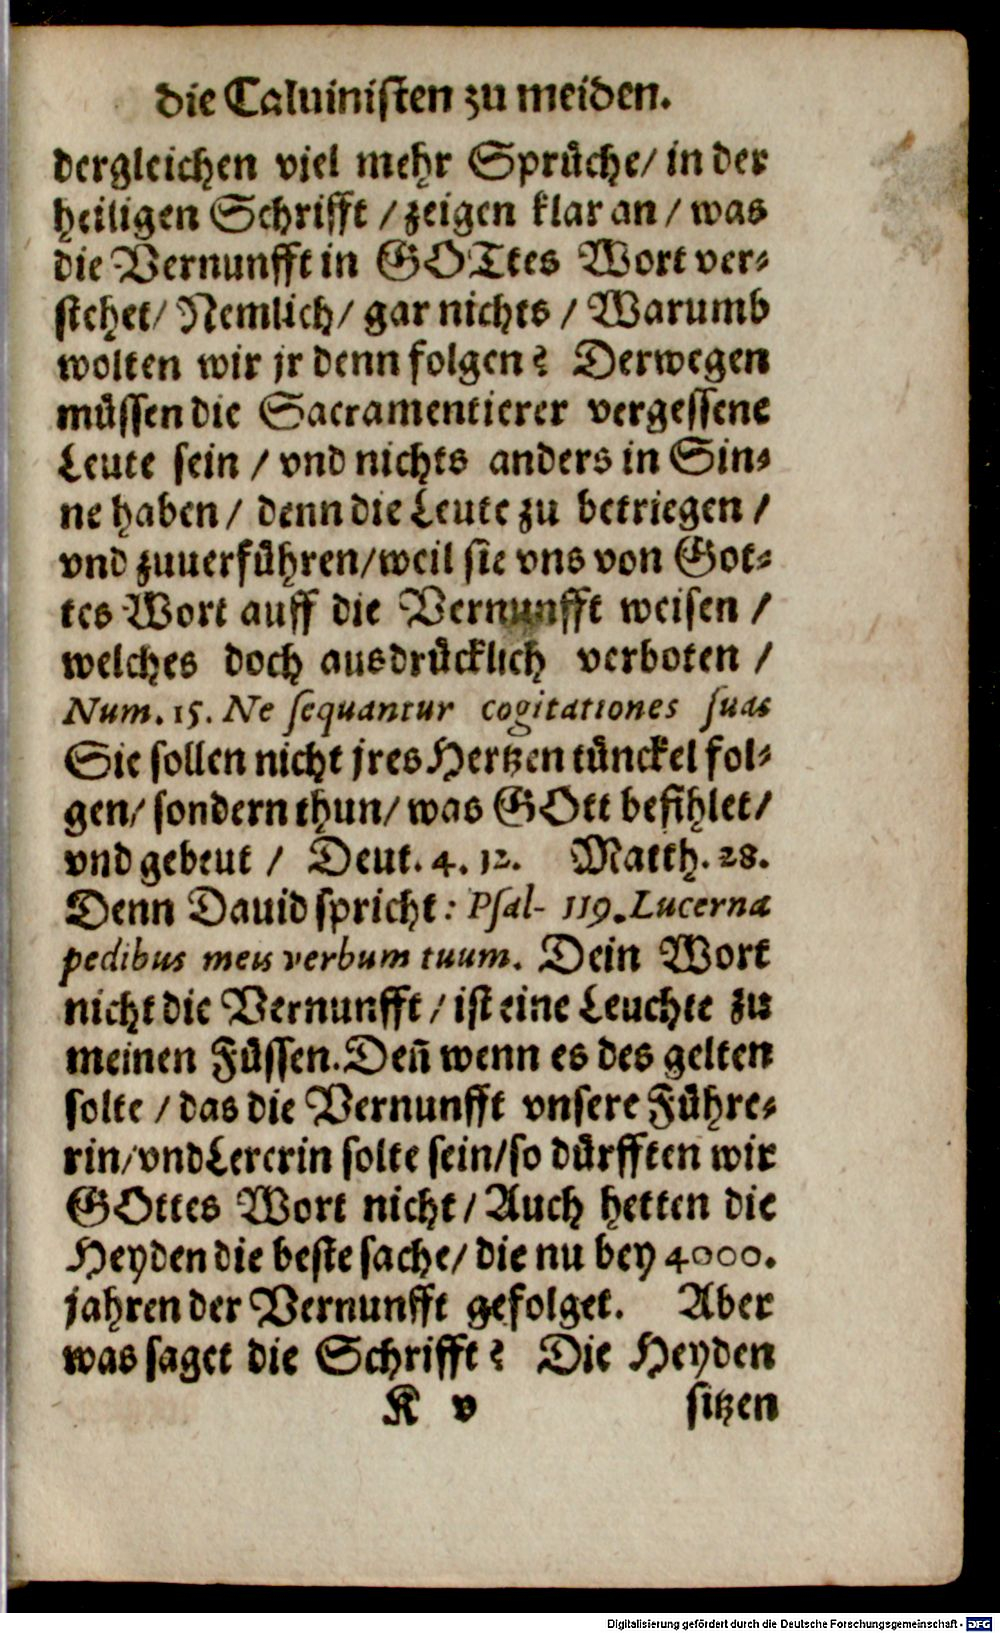 die Caluinisten zu meiden.
dergleichen viel mehr Sprůche/ in der
heiligen Schrifft / zeigen klar an / was
die Vernunfft in GOTtes Wort ver⸗
stehet/ Nemlich/ gar nichts / Warumb
wolten wir jr denn folgen? Derwegen
můssen die Sacramentierer vergessene
Leute sein / vnd nichts anders in Sin⸗
ne haben / denn die Leute zu betriegen /
vnd zuuerfůhren/weil sie vns von Got⸗
tes Wort auff die Vernunfft weisen /
welches doch ausdrůcklich verboten /
Num. 15. Ne sequantur cogitationes suas
Sie sollen nicht jres Hertzen tůnckel fol⸗
gen/ sondern thun/ was GOtt befihlet/
vnd gebeut / Deut. 4. 12. Matth. 28.
Denn Dauid spricht: Psal- 119. Lucerna
pedibus meis verbum tuum. Dein Wort
nicht die Vernunfft / ist eine Leuchte zu
meinen Fůssen. Deñ wenn es des gelten
solte / das die Vernunfft vnsere Fůhre⸗
rin/vnd Lererin solte sein/so důrfften wir
GOttes Wort nicht / Auch hetten die
Heyden die beste sache/ die nu bey 4000.
jahren der Vernunfft gefolget. Aber
was saget die Schrifft? Die Heyden
K v sitzen
Digitalisierung gefördert durch die Deutsche Forschungsgemeinschaft - DFG